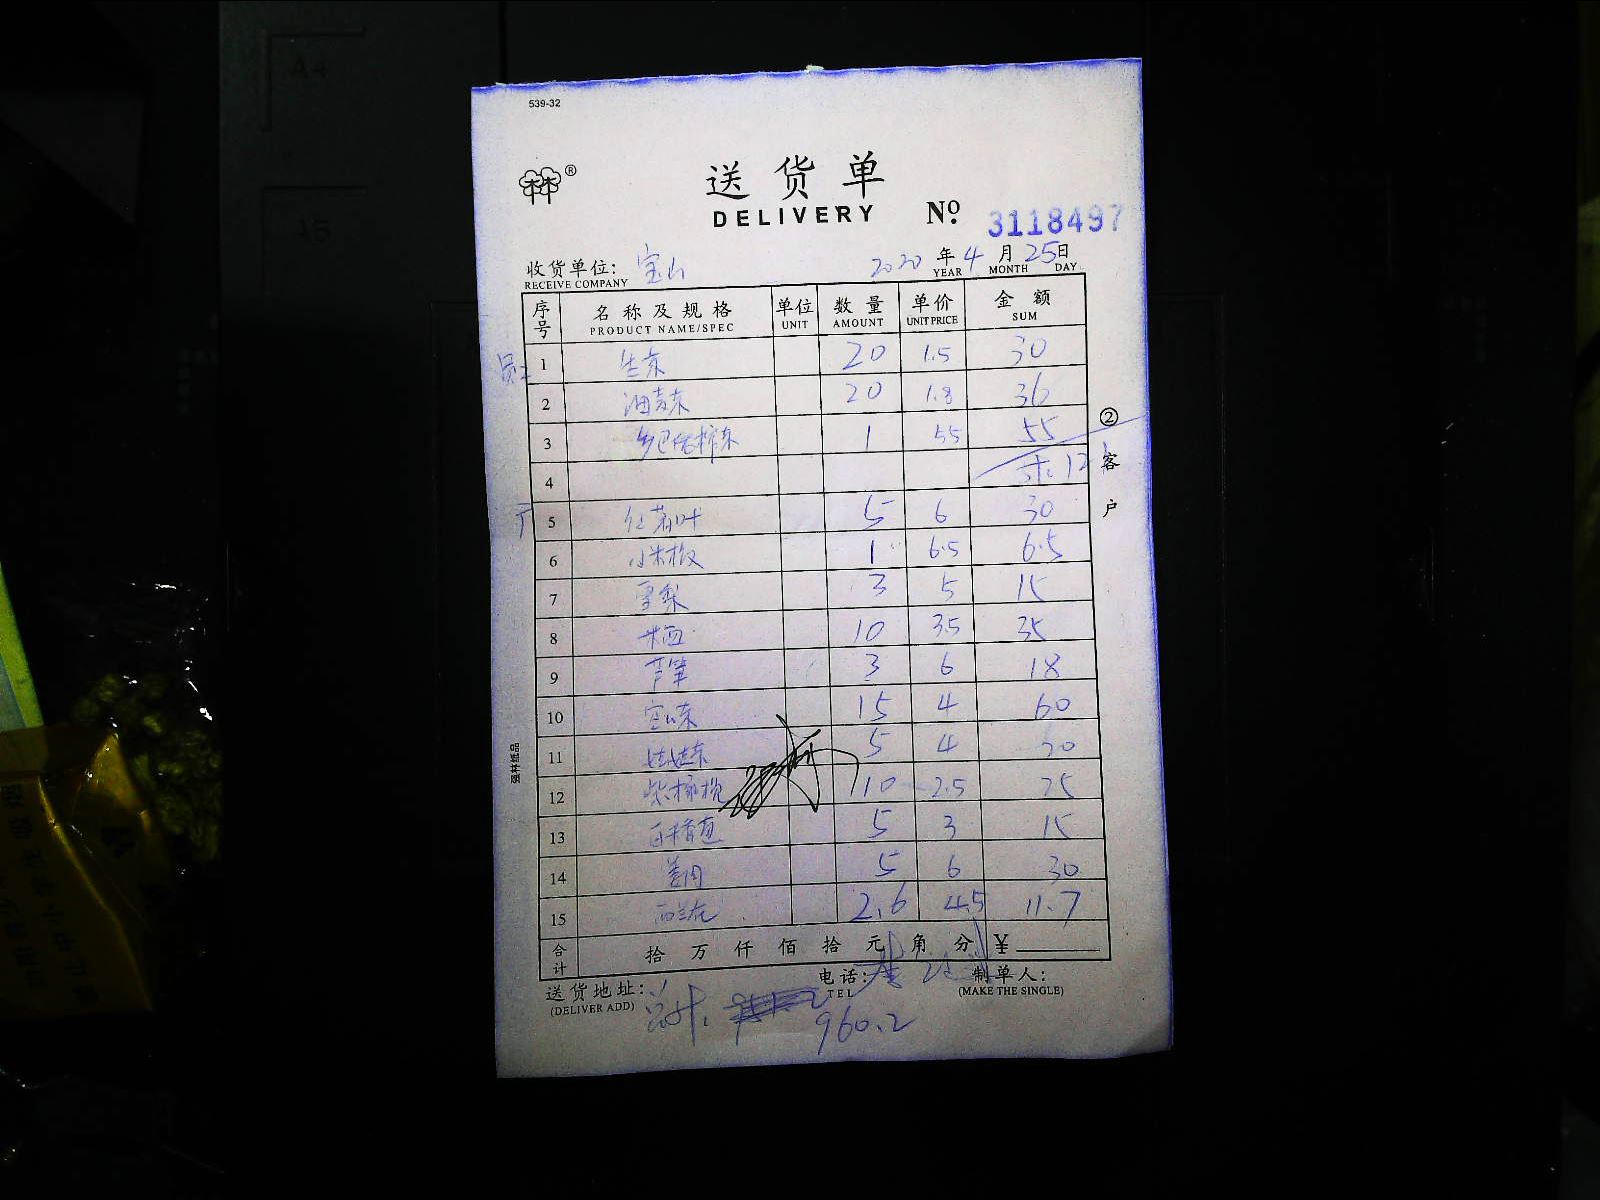 539-32
送货单
DELIVERY № 3118497
收货单位: 宝山 2020 年 4 月 25 日
RECEIVE COMPANY YEAR MONTH DAY
序号 名称及规格 单位 数量 单价 金额
PRODUCT NAME/SPEC UNIT AMOUNT UNIT PRICE SUM
1 生菜 20 1.5 30
2 油麦菜 20 1.8 36
3 乡巴佬榨菜 1 55 55
4
5 红薯叶 5 6 30
6 小米椒 1 6.5 6.5
7 雪梨 3 5 15
8 10 3.5 35
9 芦笋 3 6 18
10 空心菜 15 4 60
11 娃娃菜 5 4 20
12 10 2.5 25
13 5 3 15
14 姜肉 5 6 30
15 西兰花 2.6 4.5 11.7
合计 拾 万 仟 佰 拾 元 角 分 ¥
送货地址: 电话: 制单人:
(DELIVER ADD) TEL (MAKE THE SINGLE)
总计: 960.2
②客户
强林纸品
A4
A5